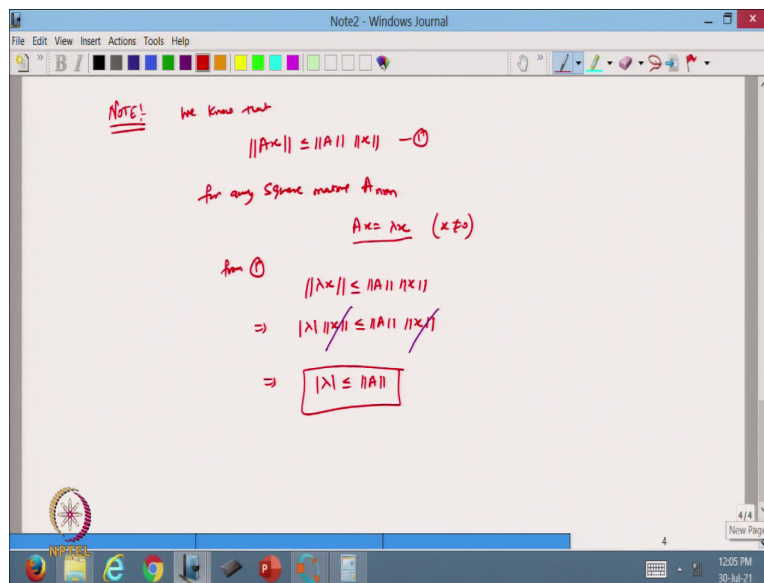 Note2 - Windows Journal
File Edit View Insert Actions Tools Help
B I
NOTE:- We know that
||Ax|| ≤ ||A|| ||x|| —①
for any square matrix Anxn
Ax = λx (x≠0)
from ①
||λx|| ≤ ||A|| ||x||
⇒ |λ| ||x|| ≤ ||A|| ||x||
⇒ |λ| ≤ ||A||
4/4
New Page
4
NPTEL
12:05 PM
30-Jul-21